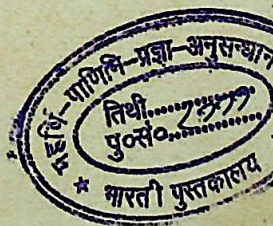 महर्षि-पाणिनि-प्रज्ञा-अनुसन्धान
तिथी..............
पु०सं०
* भारती पुस्तकालय